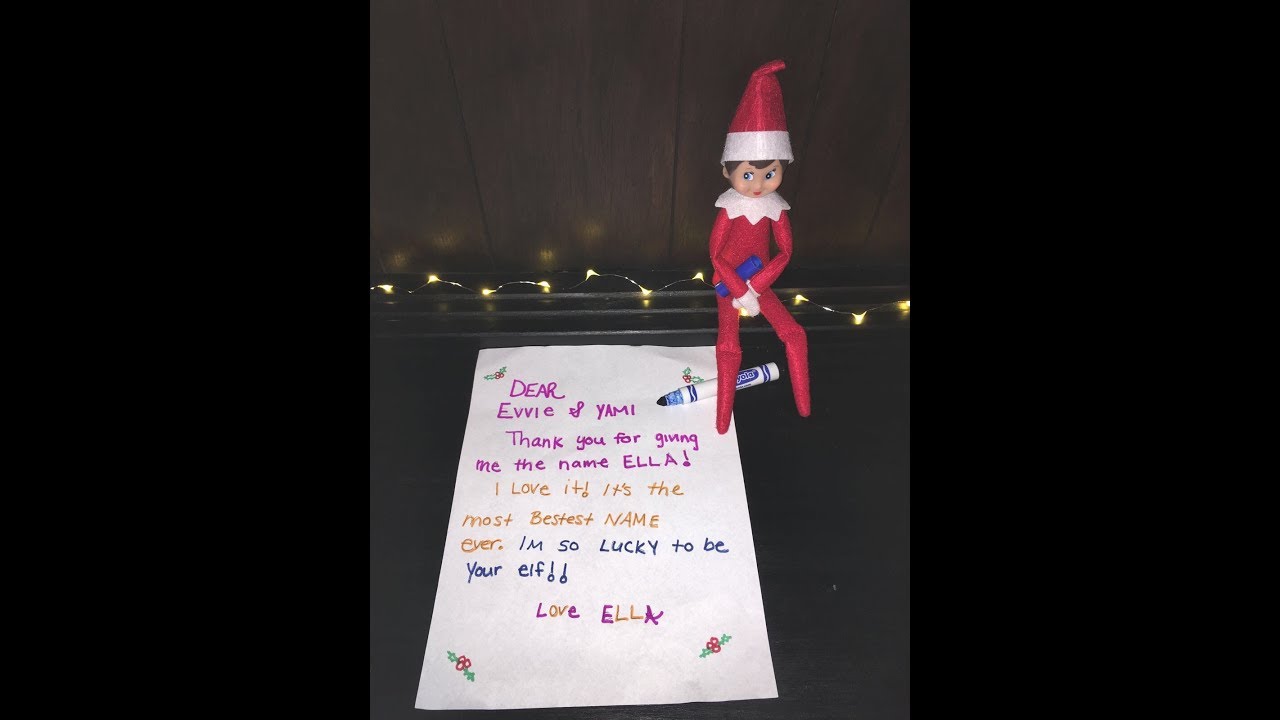 DEAR
Evvie & YAMI
Thank you for giving
me the name ELLA!
I Love it! It's the
most Bestest NAME
ever. I'M so LUCKY to be
your elf!!
Love ELLA
yola